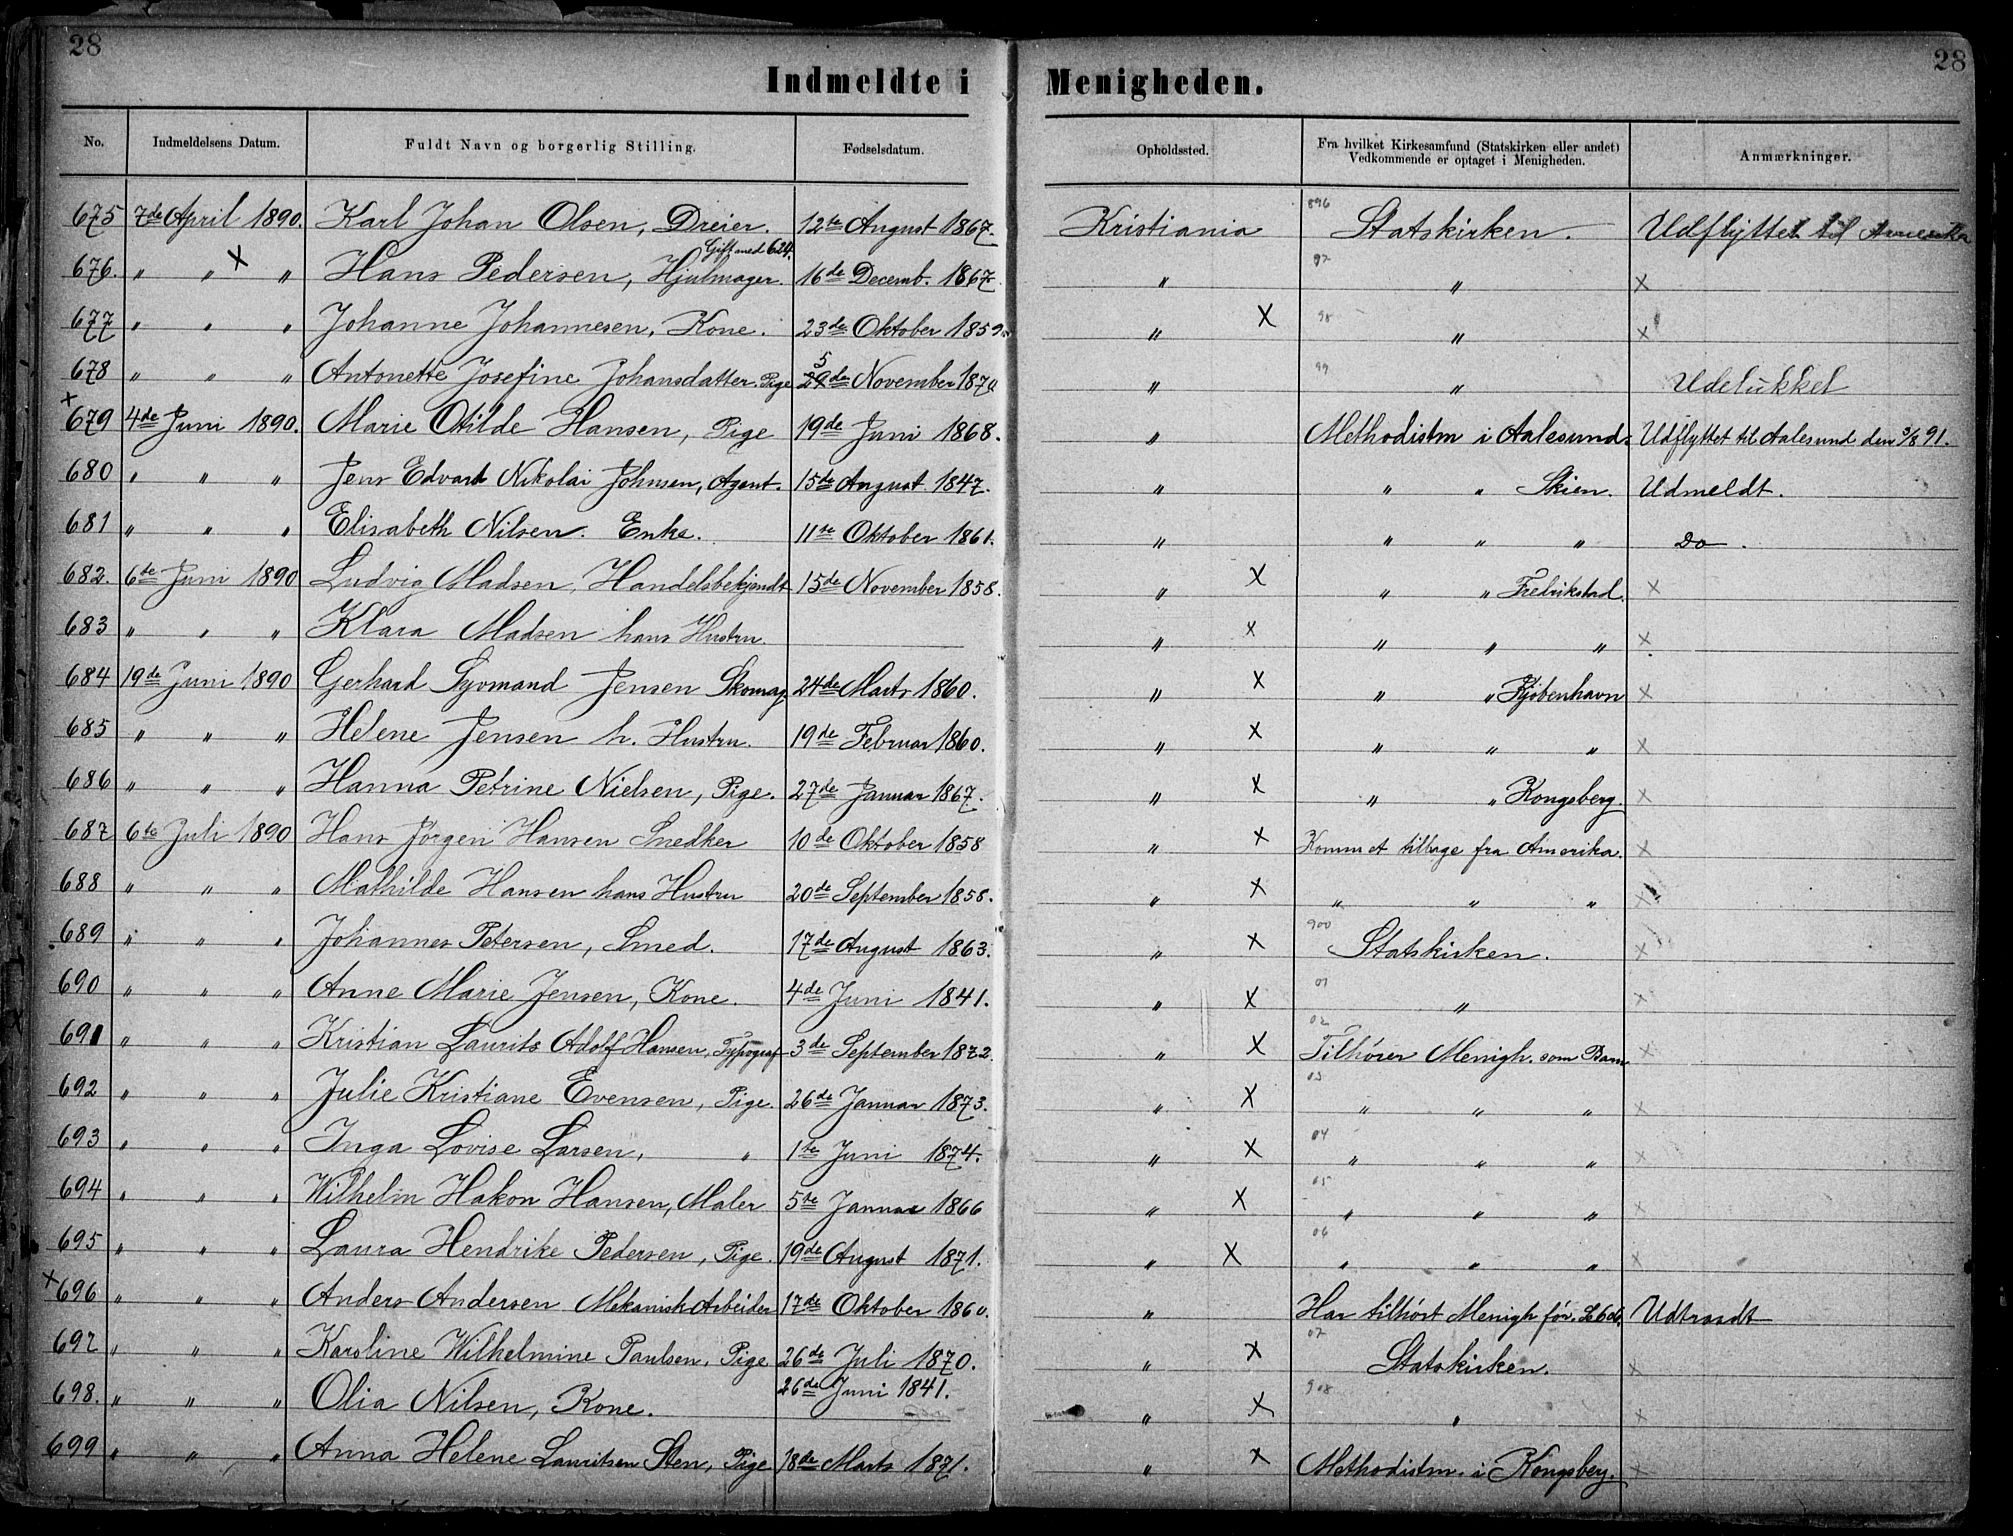 28 28
Indmeldte i Menigheden.
No. Indmeldelsens Datum. Fuldt Navn og borgerlig Stilling. Fødselsdatum. Opholdssted. Fra hvilket Kirkesamfund (Statskirken eller andet) Vedkommende er optaget i Menigheden. Anmærkninger.
675 7de April 1890. Karl Johan Olsen, Dreier. 12te August 1867. Kristiania 896 Statskirken. Udflyttet til Amerika
Gift med 624.
676. " " X " Hans Pedersen, Hjulmager. 16de Decemb. 1867. " 97 " x
677 " " " Johanne Johannesen, Kone. 23de Oktober 1859. " X 98 " x
678 " " " Antonette Josefine Johansdatter. Pige 5 29de November 1870 " 99 " Udelukket
x 679 4de Juni 1890. Marie Otilde Hansen, Pige 19de Juni 1868. " Methodistm i Aalesund. Udflyttet til Aalesund den 3/8 91.
680 " " " Jens Edvard Nikolai Johnsen, Agent. 15de August 1847. " " " Skien. Udmeldt.
681 " " " Elisabeth Nilsen. Enke. 11te Oktober 1861. " " " " Do.
682. 6te Juni 1890 Ludvig Madsen, Handelsbetjendt 15de November 1858. " X " " Fredrikstad. x
683 " " " Klara Madsen hans Hustru. " x " " " x
684 19de Juni 1890 Gerhard Syvmand Jensen Skomag. 24de Marts 1860. " X " " Kjøbenhavn x
685 " " " Helene Jensen h. Hustru. 19de Februar 1860. " X " " " x
686 " " " Hanna Petrine Nielsen, Pige. 27de Januar 1867. " X " " Kongsberg. x
687 6te Juli 1890 Hans Jörgen Hansen Snedker 10de Oktober 1858 " X Kommet tilbage fra Amerika. x
688 " " " Mathilde Hansen hans Hustru 20de September 1858. " X " " " x
689 " " " Johannes Petersen, Smed. 17de August 1863. " X 900 Statskirken. x
690 " " " Anne Marie Jensen, Kone. 4de Juni 1841. " X 01 " x
691 " " " Kristian Laurits Adolf Hansen, Typograf 3de September 1872. " X 02 Tilhører Menigh. som Barn x
692 " " " Julie Kristiane Evensen, Pige. 26de Januar 1873. " X 03 " " " x
693 " " " Inga Lovise Larsen, " 1te Juni 1874. " X 04 " " " x
694 " " " Wilhelm Hakon Hansen, Maler 5te Januar 1866 " X 05 " " " x
695 " " " Laura Hendrike Pedersen, Pige. 19de August 1871. " X 06 " " " x
x 696 " " " Anders Andersen Mekanisk Arbeider 17de Oktober 1860. " Har tilhört Menigh før. Udtraadt
697 " " " Karoline Wilhelmine Paulsen, Pige 26de Juli 1870. " X 07 Statskirken. x
698. " " " Olia Nilsen, Kone. 26de Juni 1841. " X 908 " x
699 " " " Anna Helene Lauritsen Sten, Pige 18de Marts 1871. " X Methodistm. i Kongsberg. x